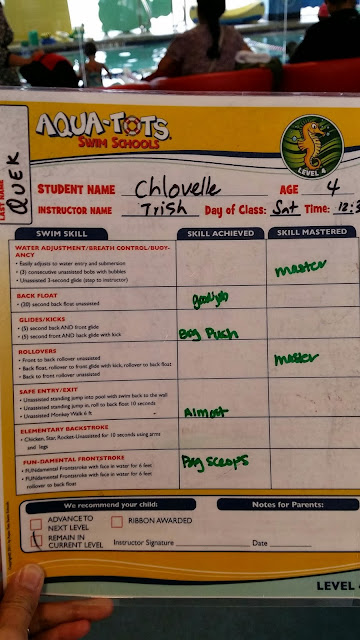 AQUA-TOTS
SWIM SCHOOLS
LEVEL 4
LAST NAME
QUEK
STUDENT NAME Chlovelle AGE 4
INSTRUCTOR NAME Trish Day of Class: Sat Time: 12:3
SWIM SKILL SKILL ACHIEVED SKILL MASTERED
WATER ADJUSTMENT/BREATH CONTROL/BUOY-
ANCY
• Easily adjusts to water entry and submersion
• (3) consecutive unassisted bobs with bubbles
• Unassisted 3-second glide (step to instructor)
master
BACK FLOAT
• (20) second back float unassisted
good job
GLIDES/KICKS
• (5) second back AND front glide
• (5) second front AND back glide with kick
Big Push
ROLLOVERS
• Front to back rollover unassisted
• Back float, rollover to front glide with kick, rollover to back float
• Back to front rollover unassisted
master
SAFE ENTRY/EXIT
• Unassisted standing jump into pool with swim back to the wall
• Unassisted standing jump in, roll to back float 10 seconds
• Unassisted Monkey Walk 6 ft
Almost
ELEMENTARY BACKSTROKE
• Chicken, Star, Rocket-Unassisted for 10 seconds using arms
and legs
FUN-DAMENTAL FRONTSTROKE
• FUNdamental Frontstroke with face in water for 6 feet
• FUNdamental Frontstroke with face in water for 6 feet
rollover to back float
scoops
We recommend your child: Notes for Parents:
ADVANCE TO
NEXT LEVEL
RIBBON AWARDED
REMAIN IN
CURRENT LEVEL
Instructor Signature Date
LEVEL 4